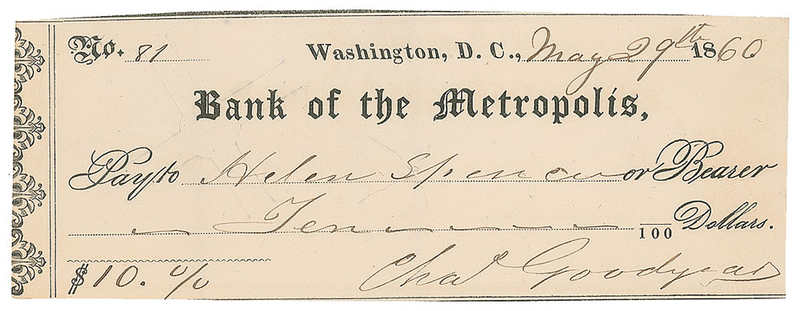 No. 81 Washington, D. C., May 29th 1860
Bank of the Metropolis,
Pay to Helen Spencer or Bearer
Ten /100 Dollars.
$10. 0/0 Chas Goodyear